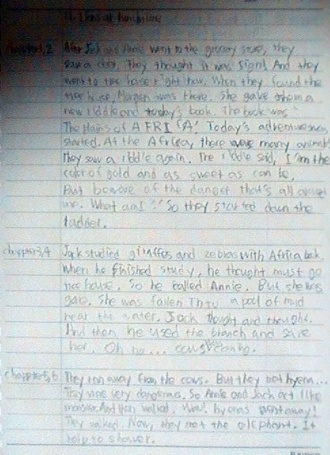 11. Lions at lunchtime
chapter 1,2 After Jack and Annie went to the grocery store, they
saw a deer. They thought it was sign! And they
went to tree house right now. When they found the
tree house, Morgan was there. She gave them a
new riddle and today's book. The book was "
The Plains of AFRICA". Today's adventure was
started. At the Africa, there were many animals.
They saw a riddle again. The riddle said, I'm the
color of gold and as sweet as can be.
But beware of the danger that's all around
me. What am I?" So they started down the
ladder.
chapter 3,4 Jack studied giraffes and zebras with Africa book.
When he finished study, he thought must go
tree house. So he called Annie. But she was
gone. She was fallen a pool of mud
near the water. Jack thought and thought.
And then he used the branch and save
her. Oh no... coming.
chapter 5,6 They ran away from the cows. But they hyena...
They were very dangerous. So Annie and Jack act like
monster. And then walked. Wow! hyenas went away!
They walked. Now, they met the elephant. It
help to shower.